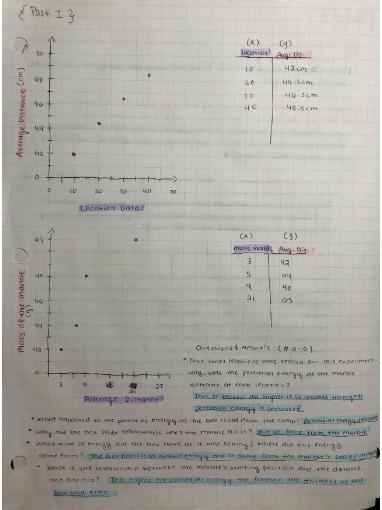 { Part I }
(x) (y)
location Avg. Dis.
10 42cm
20 44.5cm
30 46.5cm
40 48.5cm
Average Distance (cm)
50
48
46
44
42
0
0 10 20 30 40 50
Location Data
(x) (y)
mass marble Avg. Dis.
3 42
5 44
9 48
21 63
Mass of the marble
(g)
63
48
46
44
42
0
3 9 15 21 27
Average Distance
Questions & Answers (# 2-6)
• Four start locations were chosen for this experiment.
why was the potential energy of the marble
different at each location?
This is because the higher it is located the higher
potential energy it possesses
• What happened to the potential energy as the ball rolled down the ramp? Potential energy
• Why did the box slide when the marble hit it? due to force from the marble
• What kind of energy did the box have as it was sliding? Where did this energy
come from? The box possessed kinetic energy and it came from the marble's
• What is the relationship between the marble's starting position and the distance
the box slid? The higher the potential energy the further the distance of the
box will slide